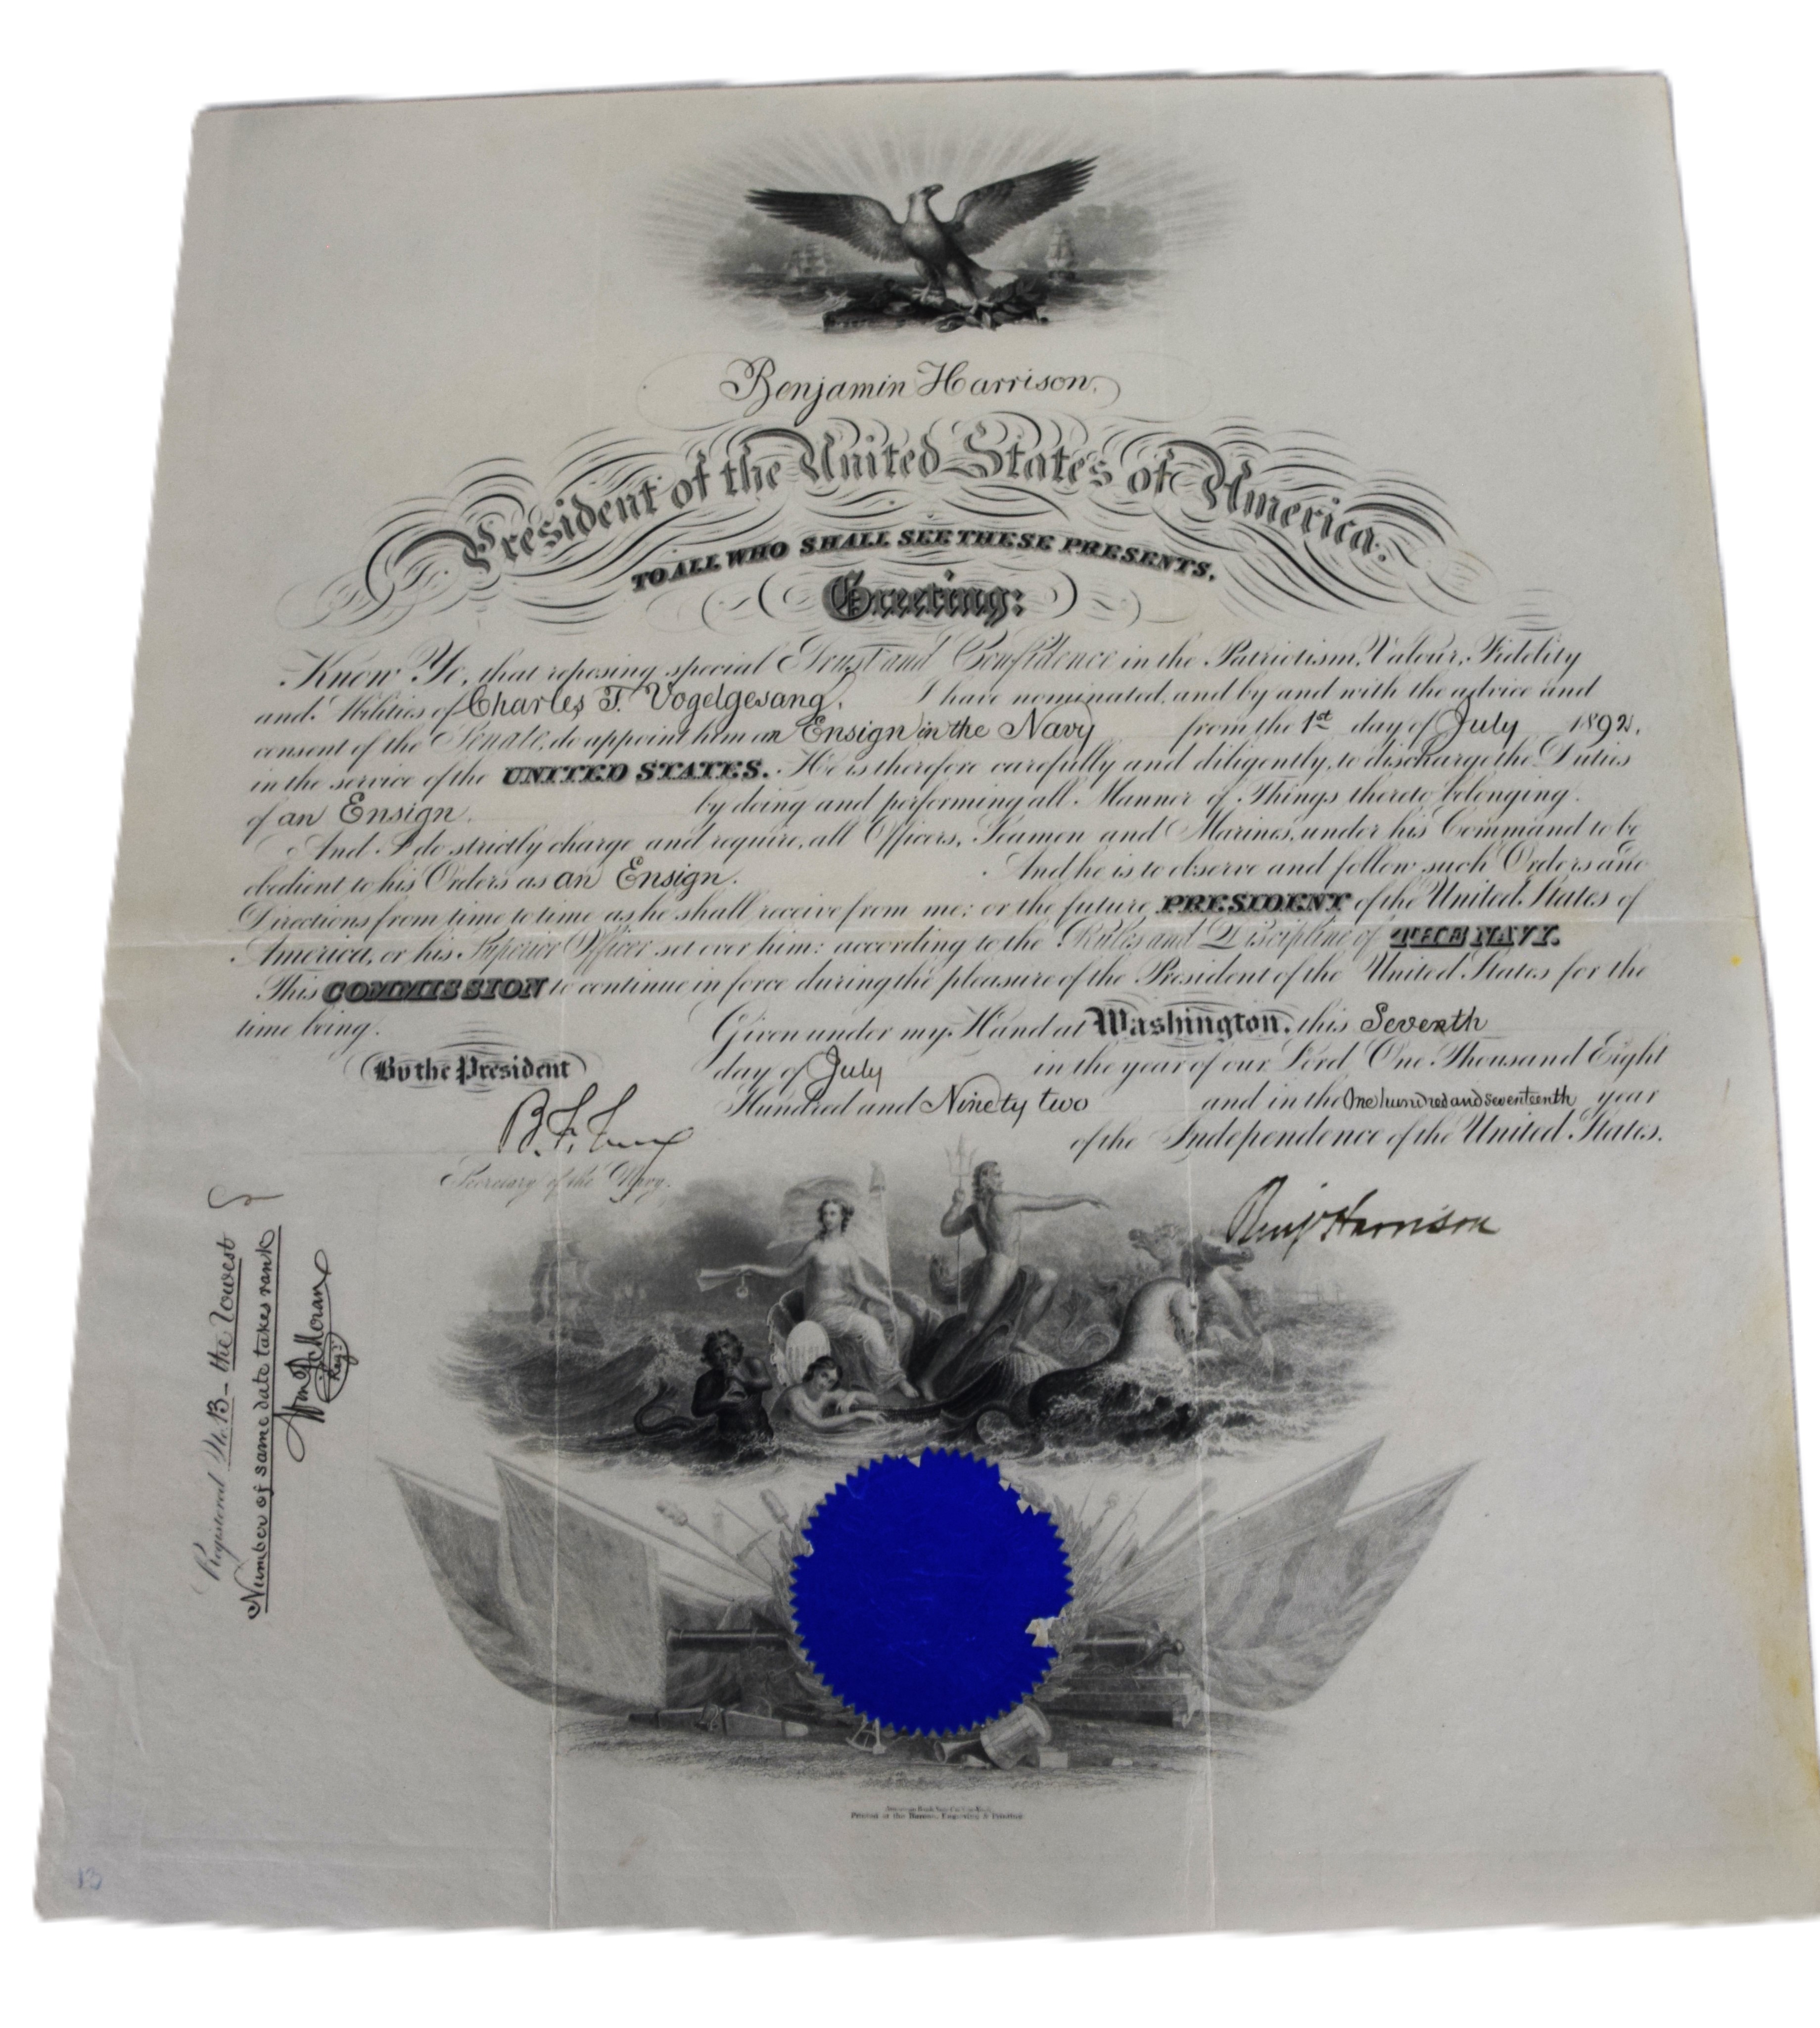 Benjamin Harrison,
President of the United States of America.
TO ALL WHO SHALL SEE THESE PRESENTS,
Greeting:
Know Ye, that reposing special Trust and Confidence in the Patriotism, Valour, Fidelity
and Abilities of Charles T. Vogelgesang, I have nominated, and by and with the advice and
consent of the Senate, do appoint him an Ensign in the Navy from the 1st day of July 1892,
in the service of the UNITED STATES. He is therefore carefully and diligently, to discharge the Duties
of an Ensign. by doing and performing all Manner of Things thereto belonging.
And I do strictly charge and require, all Officers, Seamen and Marines, under his Command to be
obedient to his Orders as an Ensign. And he is to observe and follow such Orders and
Directions from time to time as he shall receive from me; or the future PRESIDENT of the United States of
America, or his Superior Officer set over him: according to the Rules and Discipline of THE NAVY.
This COMMISSION to continue in force during the pleasure of the President of the United States for the
time being.
Given under my Hand at Washington, this Seventh
By the President
day of July in the year of our Lord One Thousand Eight
Hundred and Ninety two and in the One hundred and seventeenth year
of the Independence of the United States.
B. F. Tracy
Secretary of the Navy.
Benj Harrison
Registered No. 13 - the lowest
Number of same date takes rank
Wm P. Moran
Reg.
Printed at the Bureau, Engraving & Printing
13